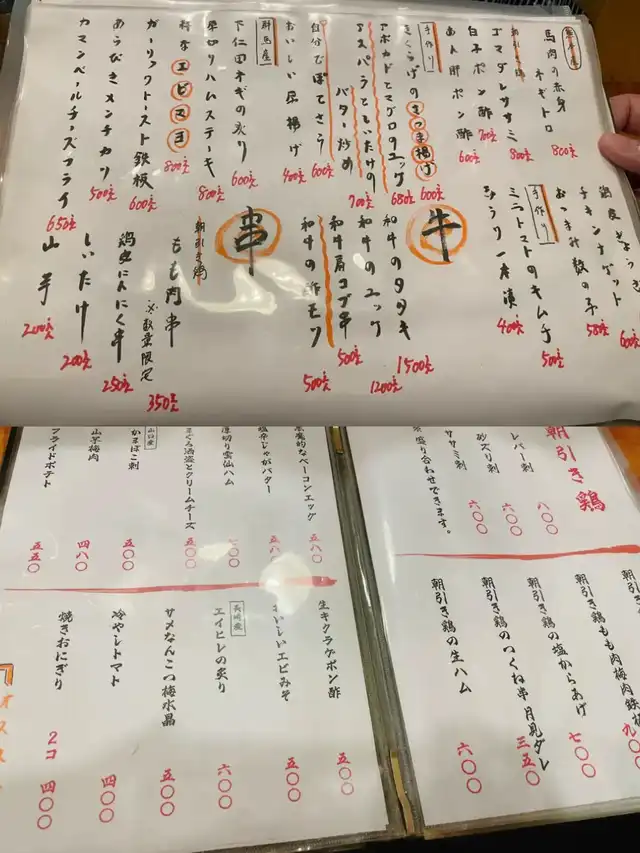 馬肉の赤身
ネギトロ
800え
朝引き鶏
ゴマダレササミ
800え
白子ポン酢
700え
あん肝ポン酢
600え
手作り
きくらげのさつま揚げ
600え
アボカドとマグロのユッケ
680え
アスパラとしいたけの
バター炒め
700え
自分でぽてさら
600え
おいしい厚揚げ
400え
群馬産
下仁田ネギの炙り
600え
厚切りハムステーキ
800え
エビマヨ
800え
ガーリックトースト鉄板
600え
あらびきメンチカツ
500え
カマンベールチーズフライ
650え
鶏皮ぎょうざ
600え
チキンナゲット
580え
おつまみ数の子
手作り
ミニトマトのキムチ
500え
きゅうり一本漬
400え
牛
和牛のタタキ
1500え
和牛のユッケ
1200え
和牛肩コブ串
500え
和牛の酢モツ
500え
串
朝引き鶏
もも肉串
※数量限定
350え
鶏皮にんにく串
250え
しいたけ
200え
山芋
200え
朝引き鶏
レバー刺
八〇〇
砂ズリ刺
六〇〇
ササミ刺
六〇〇
盛り合わせできます。
朝引き鶏もも肉梅肉鉄板
九〇
朝引き鶏の塩からあげ
七〇〇
朝引き鶏のつくね串月見ダレ
三五〇
朝引き鶏の生ハム
六〇〇
悪魔的なベーコンエッグ
五八〇
塩辛じゃがバター
五八〇
厚切り雲仙ハム
まぐろ酒盗とクリームチーズ
五〇〇
かまぼこ刺
五〇〇
山芋梅肉
四八〇
フライドポテト
五五〇
生キクラゲポン酢
五〇〇
おいしいエビみそ
五〇〇
長崎産
エイヒレの炙り
六〇〇
サメなんこつ梅水晶
五〇〇
冷やしトマト
四〇〇
焼きおにぎり
2コ
四〇〇